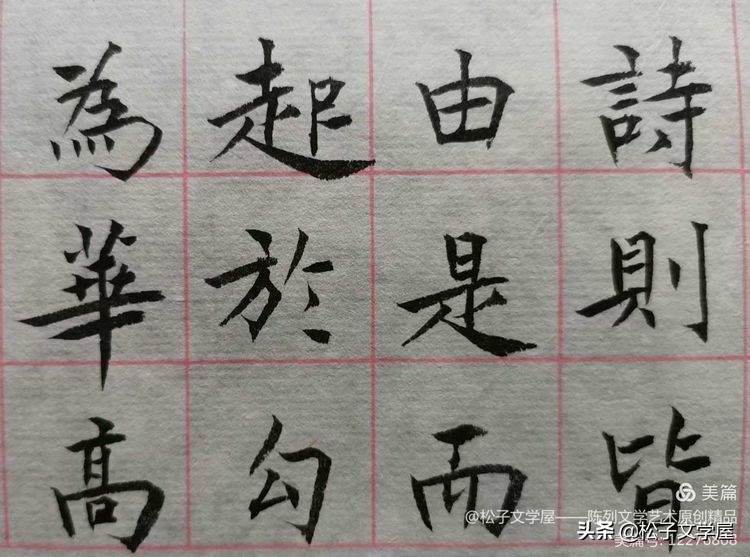 詩則皆
由是而
起於勾
為華高
美篇
@松子文学屋——陈列文学艺术原创精品
头条 @松子文学屋
美篇号:12275808